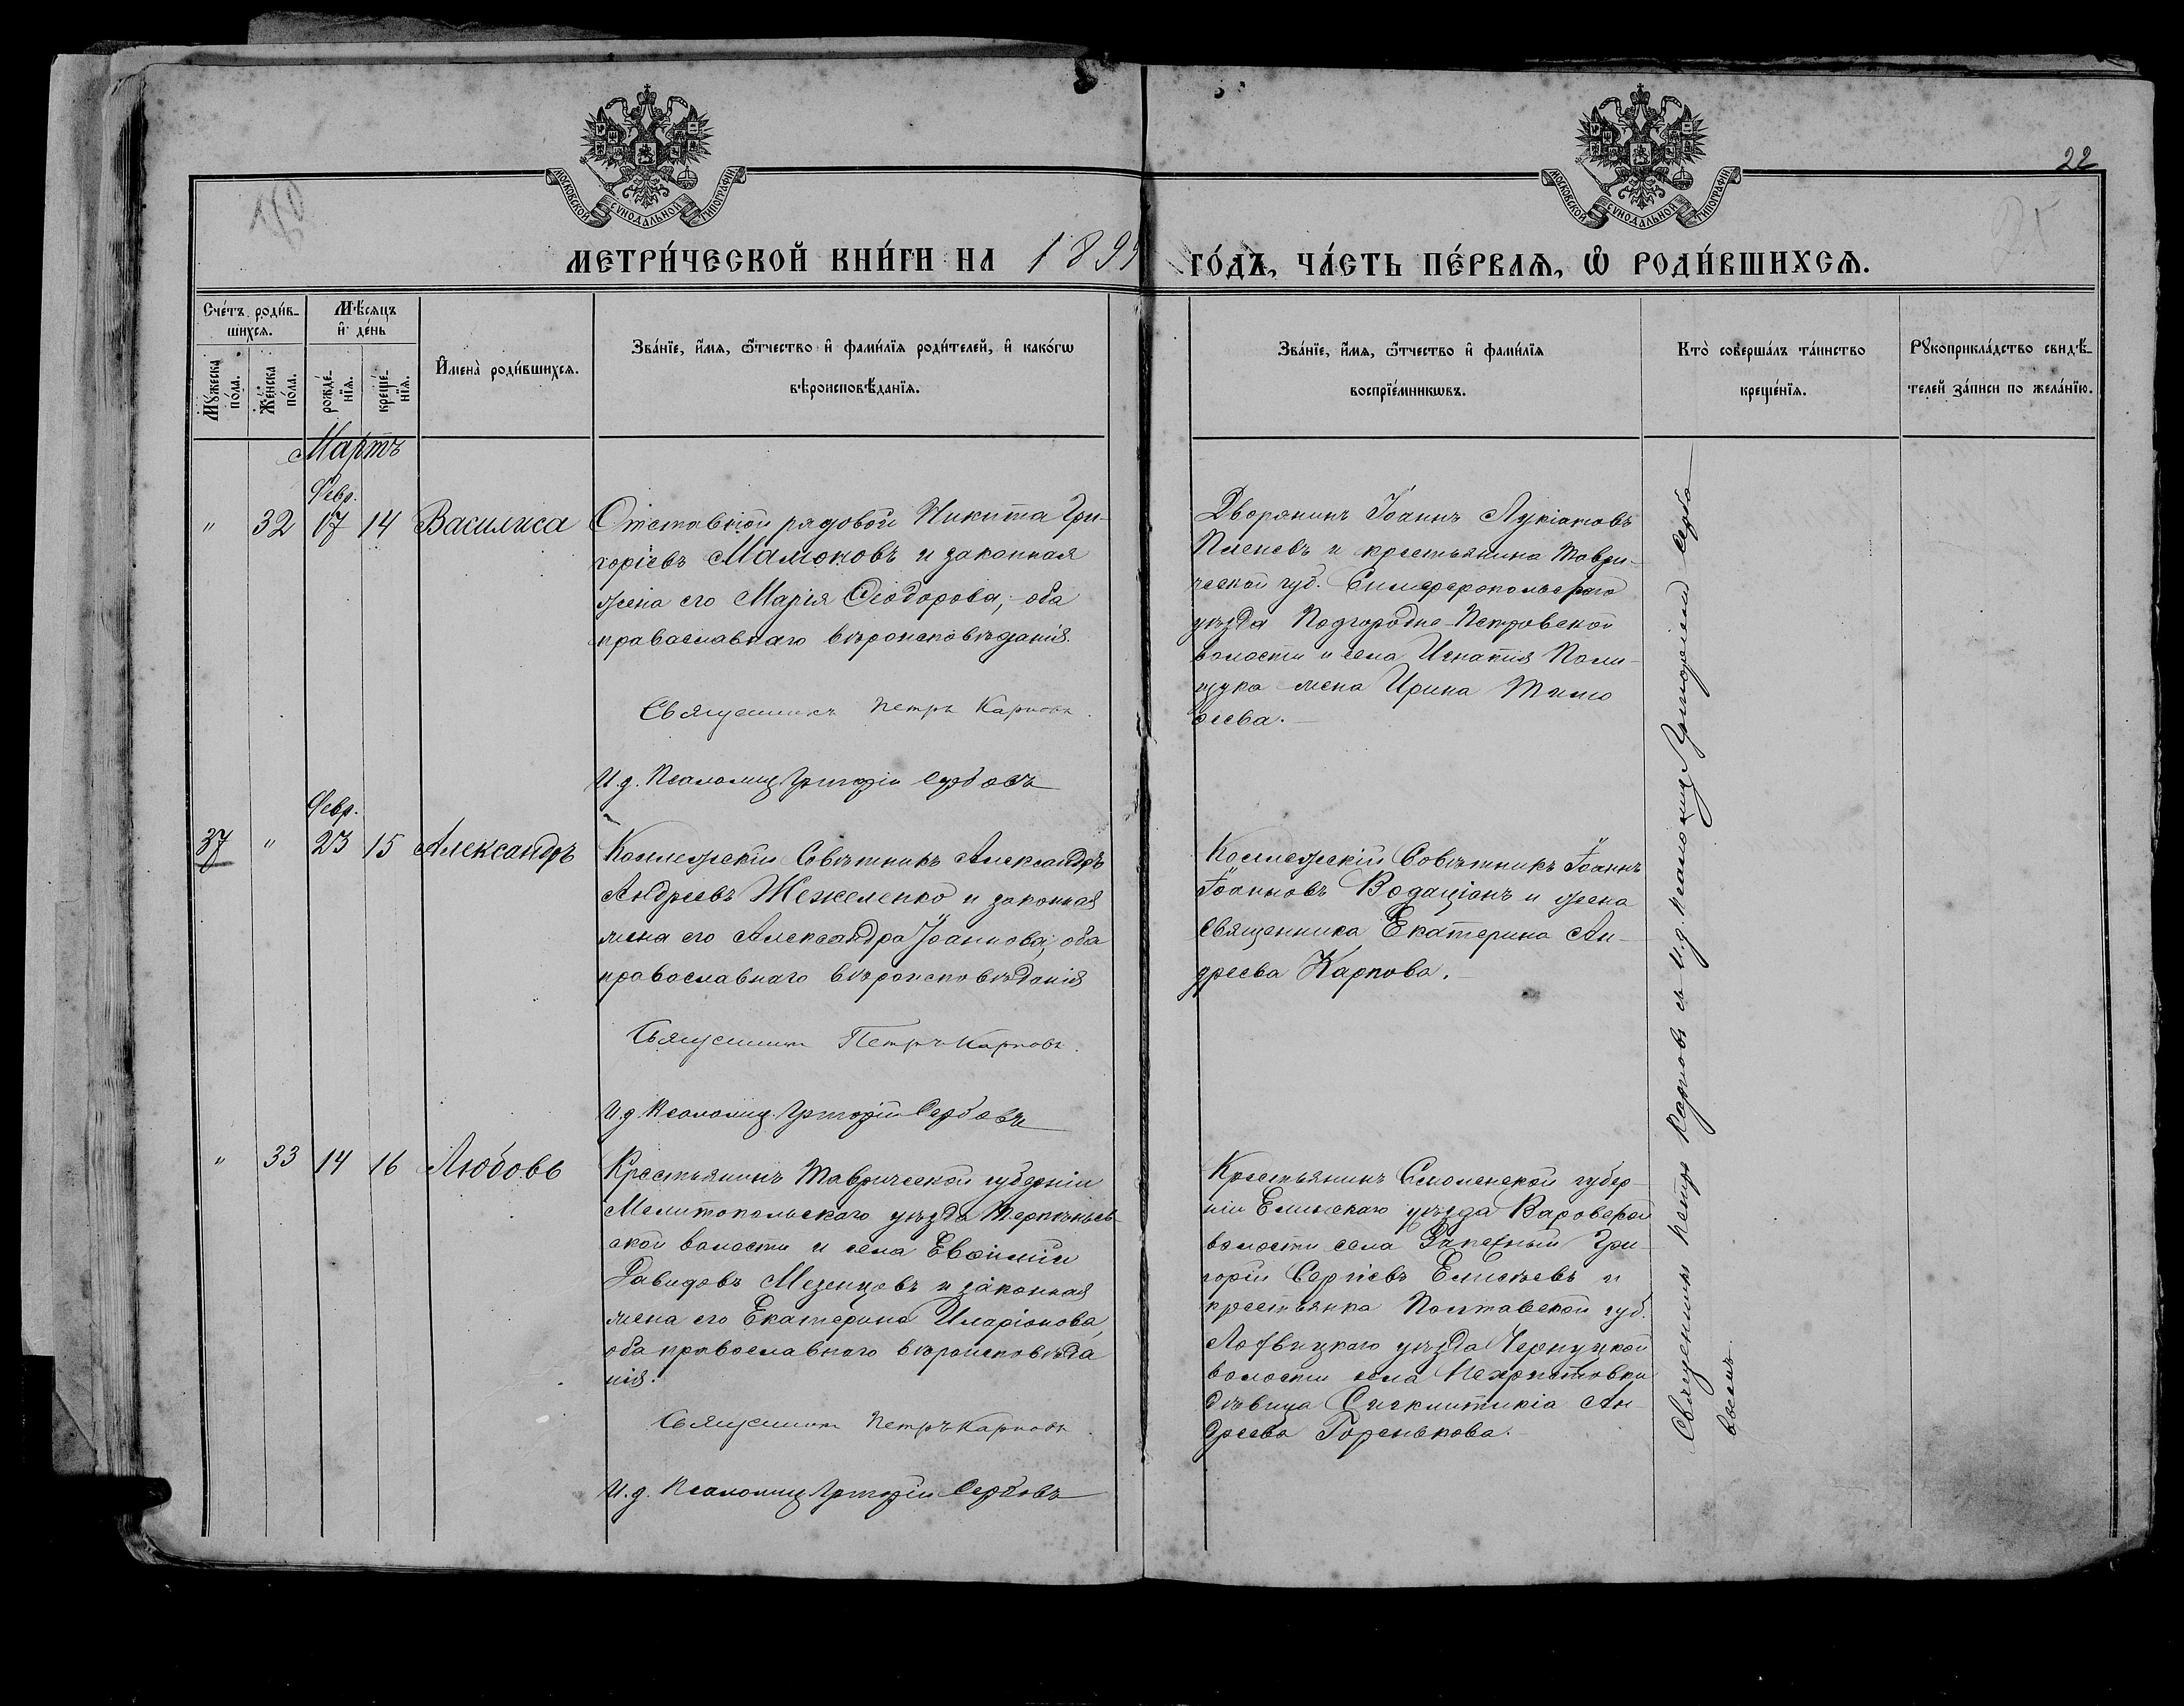 МОСКОВСКОЙ СѴНОДАЛЬНОЙ ТИПОГРАФІИ
МОСКОВСКОЙ СѴНОДАЛЬНОЙ ТИПОГРАФІИ
22
МЕТРИ́ЧЕСКОЙ КНИ́ГИ НА 189 ГО́ДЪ, ЧА́СТЬ ПЕ́РВАѦ, Ѡ҆ РОДИ́ВШИХСѦ.
Сче́тъ роди́в-
шихсѧ.
Мꙋ́жеска по́ла.
Же́нска по́ла.
Мѣ́сѧцъ
и҆ де́нь
рожде́-нїѧ.
креще́-нїѧ.
И҆мена̀ роди́вшихсѧ.
Зва́нїе, и҆́мѧ, ѻ҆́тчество и҆ фами́лїѧ роди́телей, и҆ како́гѡ
вѣроисповѣ́данїѧ.
Зва́нїе, и҆́мѧ, ѻ҆́тчество и҆ фами́лїѧ
воспрїе́мникѡвъ.
Кто̀ соверша́лъ та́инство
креще́нїѧ.
Рꙋкоприкла́дство свидѣ́-
телей за́писи по жела́нїю.
Мартъ
Февр.
" 32 17 14 Василиса
Отставной рядовой Никита Гри-
горіевъ Мамоновъ и законная
жена его Марія Ѳеодорова, оба
православнаго вѣроисповѣданія.
Священникъ Петръ Карповъ.
И. д. Псаломщ. Григорій Сербовъ
Дворянинъ Іоаннъ Лукіановъ
и крестьянина Таври-
ческой губ. Симферопольскаго
уѣзда Подгородне-Петровской
волости и села Игнатія Поли-
щука жена Ирина Тимо
ѳеева.
Февр.
37 " 23 15 Александръ
Коллежскій Совѣтникъ Александръ
Андреевъ Жежеленко и законная
жена его Александра Іоаннова, оба
православнаго вѣроисповѣданія
Священникъ Петръ Карповъ.
И. д. Псаломщ. Григорій Сербовъ
Коллежскій Совѣтникъ Іоаннъ
Іоанновъ Водаціанъ и жена
священника Екатерина Ан-
дреева Карпова.
" 33 14 16 Любовь
Крестьянинъ Таврической губерніи
Мелитопольскаго уѣзда Терпѣньев-
ской волости и села Евѳимій
Давидовъ Мезенцевъ и законная
жена его Екатерина Иларіонова,
оба православнаго вѣроисповѣда
нія.
Священникъ Петръ Карповъ.
И. д. Псаломщ. Григорій Сербовъ
Крестьянинъ Смоленской губер-
ніи Елинскаго уѣзда
волости села Гри-
горій Сергіевъ Елисѣевъ и
крестьянка Полтавской губ.
Лохвицкаго уѣзда Чернуцкой
волости села Нехристовки
дѣвица Сигклитикіа Ан-
дреева Горенькова.
Священникъ Петръ Карповъ съ и. д. псаломщ. Григоріемъ Серб
вымъ.